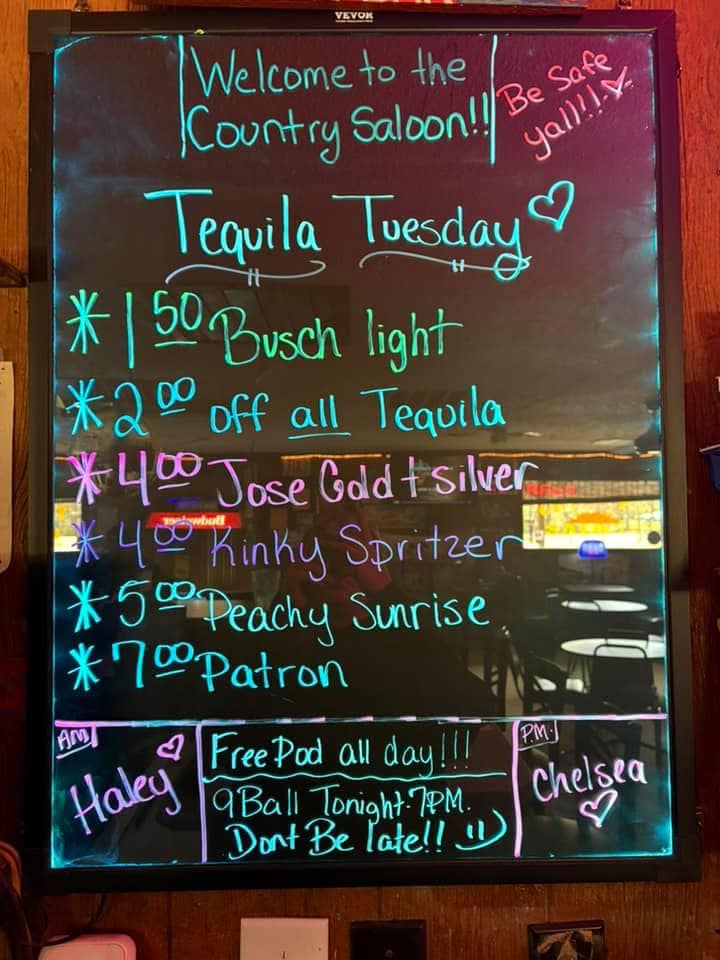 VEVOR
Welcome to the
Country Saloon!!
Be Safe
yall!!!
Tequila Tuesday
*1 50 Busch light
*2 00 off all Tequila
*4 00 Jose Gold + silver
Budweiser
*4 00 Kinky Spritzer
*5 00 Peachy Sunrise
*7 00 Patron
AM
Haley
Free Pool all day!!!
9 Ball Tonight-7PM.
Dont Be late!!
P.M.
Chelsea